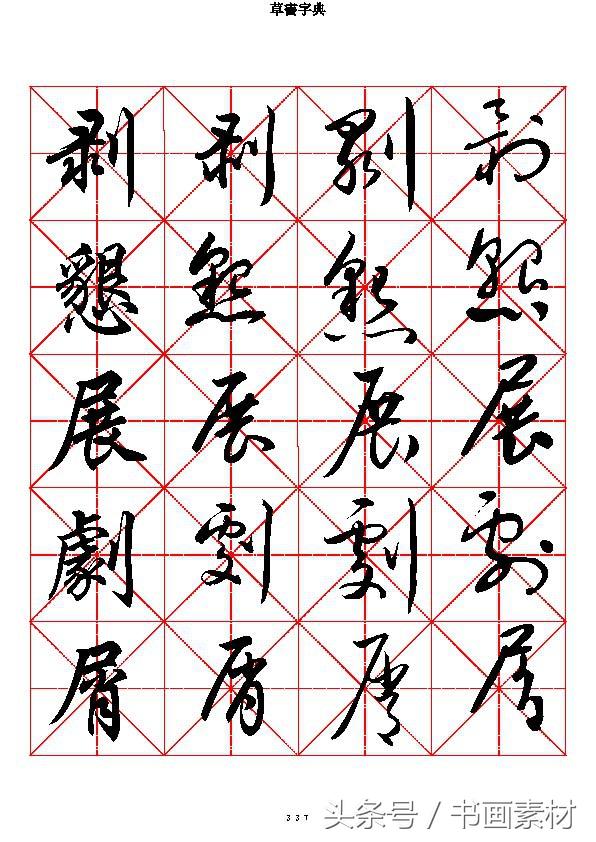 草書字典
剝 剝 剝 剝
懇 懇 懇 懇
展 展 展 展
劇 劇 劇 劇
屑 屑 屑 屑
337
头条号 / 书画素材